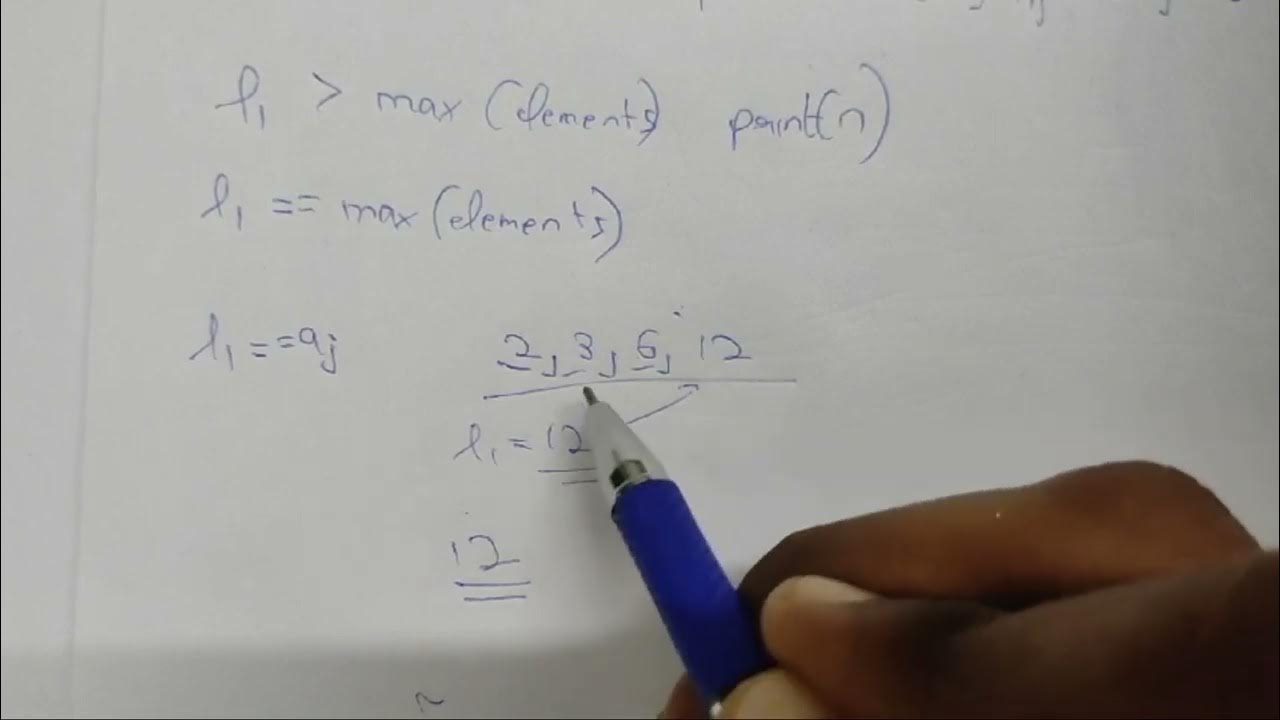 l₁ > max (elements) print(n)
l₁ == max(elements)
l₁ == aj 2, 3, 6, 12
l₁ = 12
12